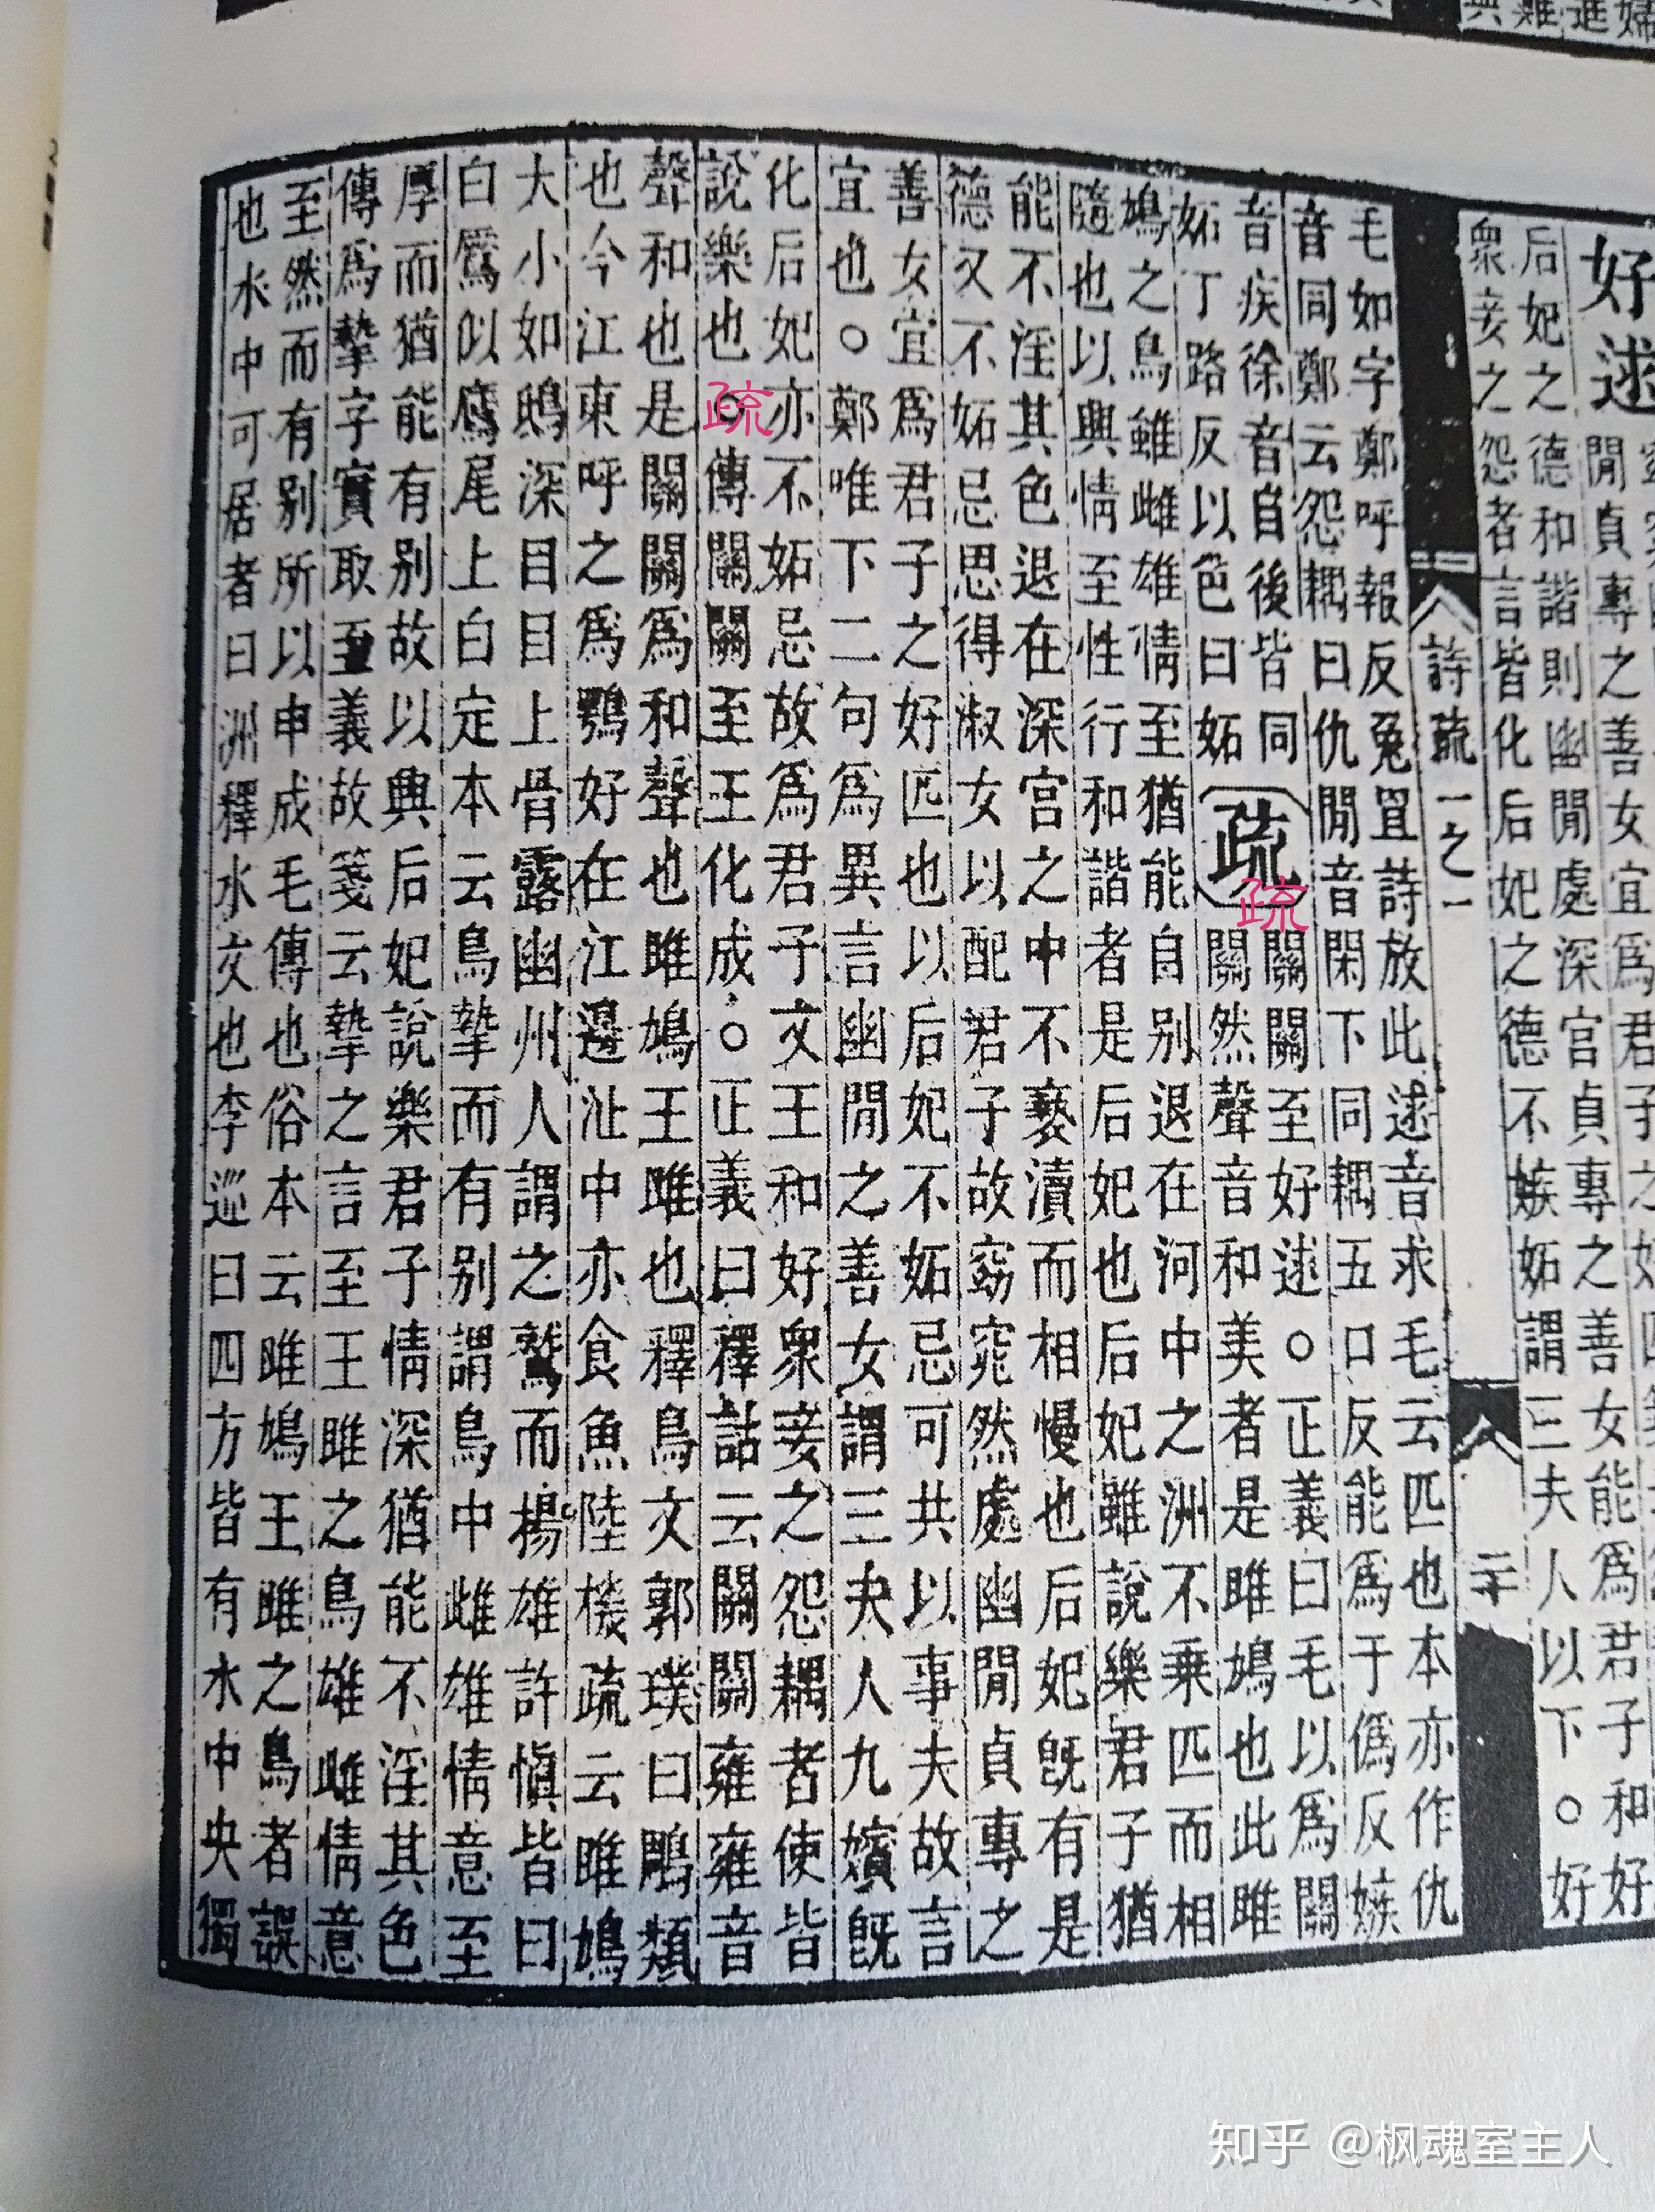 婦
進
雖
興
好逑
閒貞專之善女宜爲君子之好
后妃之德和諧則幽閒處深宫貞專之善女能爲君子和好
衆妾之怨者言皆化后妃之德不嫉妬謂三夫人以下。好
詩疏一之一 二十
毛如字鄭呼報反兔罝詩放此逑音求毛云匹也本亦作仇
音同鄭云怨耦曰仇閒音閑下同耦五口反能爲于僞反嫉
音疾徐音自後皆同
妬丁路反以色曰妬
疏
疏
關關至好逑。正義曰毛以爲關
關然聲音和美者是雎鳩也此雎
鳩之鳥雖雌雄情至猶能自别退在河中之洲不乗匹而相
隨也以興情至性行和諧者是后妃也后妃雖說樂君子猶
能不淫其色退在深宫之中不褻瀆而相慢也后妃既有是
德又不妬忌思得淑女以配君子故窈窕然處幽閒貞專之
善女宜爲君子之好匹也以后妃不妬忌可共以事夫故言
宜也。鄭唯下二句爲異言幽閒之善女謂三夫人九嬪既
化后妃亦不妬忌故爲君子文王和好衆妾之怨耦者使皆
說樂也。疏傳關關至王化成。正義曰釋詁云關關雍雍音
聲和也是關關爲和聲也雎鳩王雎也釋鳥文郭璞曰鵰類
也今江東呼之爲鶚好在江邊沚中亦食魚陸機疏云雎鳩
大小如鴟深目目上骨露幽州人謂之鷲而楊雄許慎皆曰
白鷢似鷹尾上白定本云鳥摯而有别謂鳥中雌雄情意至
厚而猶能有别故以興后妃說樂君子情深猶能不淫其色
傳爲摯字實取至義故箋云摯之言至王雎之鳥雄雌情意
至然而有别所以申成毛傳也俗本云雎鳩王雎之鳥者誤
也水中可居者曰洲釋水文也李巡曰四方皆有水中央獨
知乎 @枫魂室主人